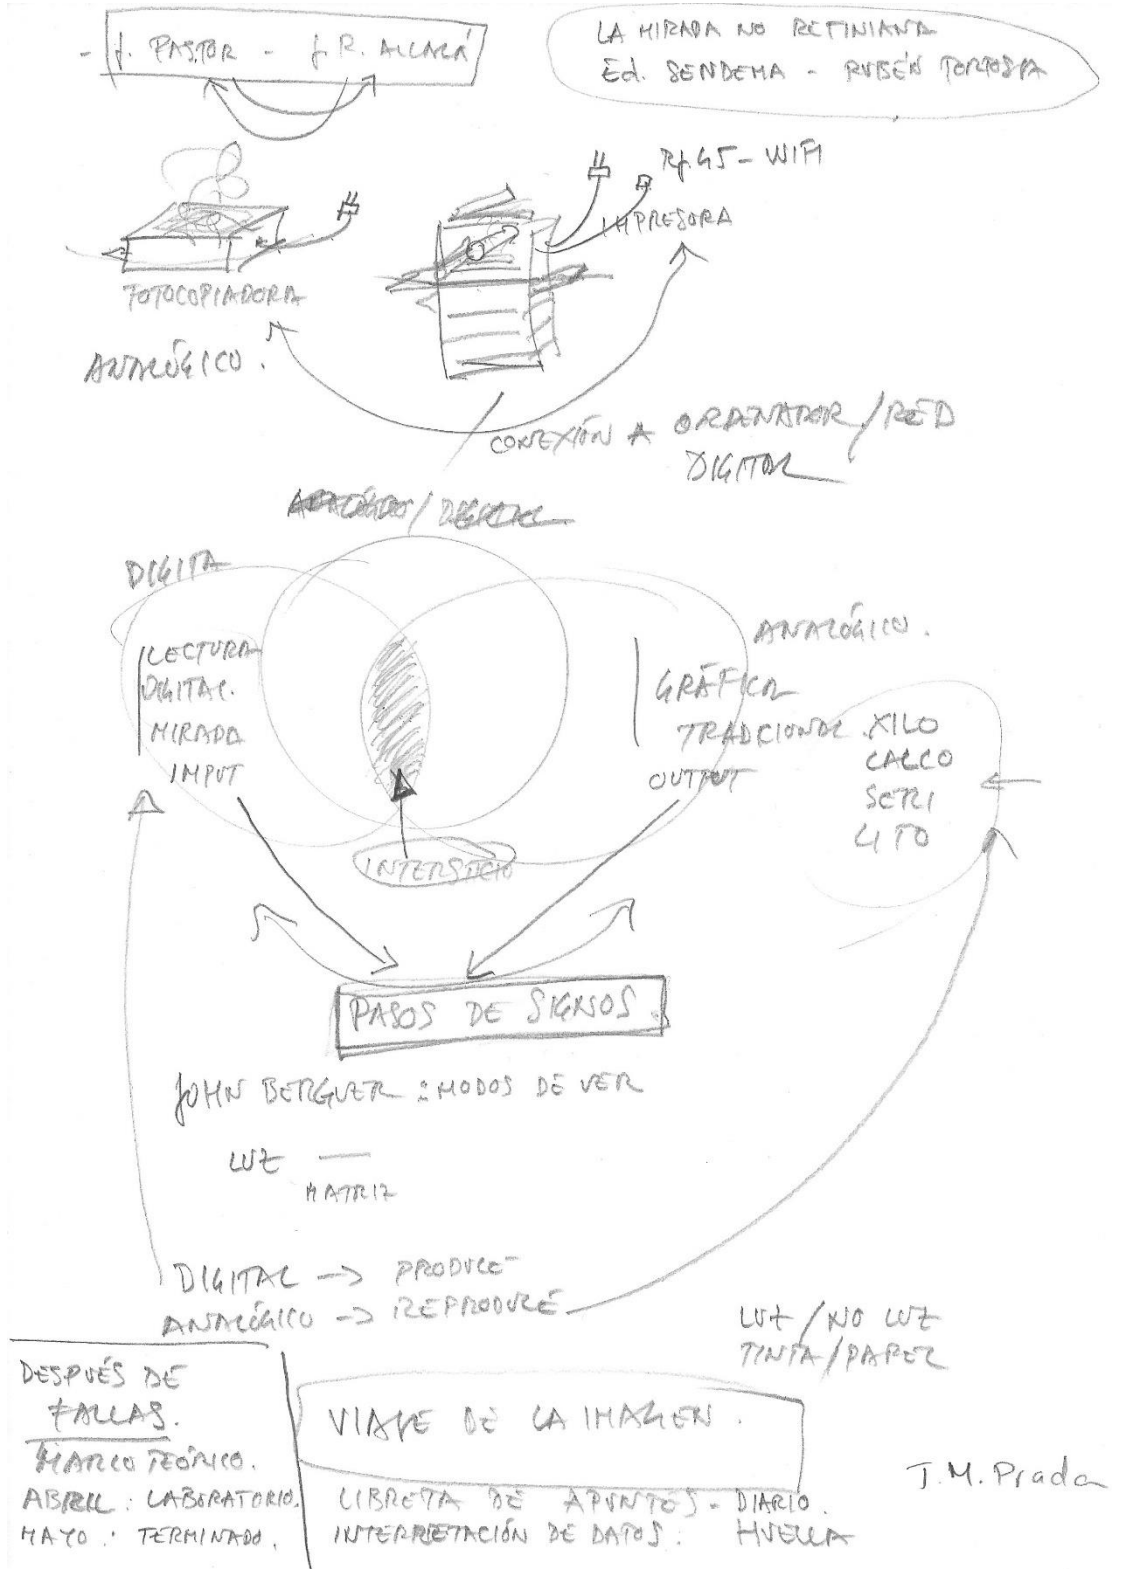 - J. PASTOR - J. R. ALCALÁ
LA MIRADA NO RETINIANA
Ed. SENDEMA - RUBÉN TORTOSA
RJ.45 - WIFI
IMPRESORA
FOTOCOPIADORA
ANALÓGICO.
CONEXIÓN A ORDENADOR / RED
DIGITAL
DIGITA
ANALÓGICO.
LECTURA
DIGITAL.
MIRADA
INPUT
GRÁFICA
TRADICIONAL.
OUTPUT
XILO
CALCO
SERI
LITO
INTERSTICIO
PASOS DE SIGNOS.
JOHN BERGUER : MODOS DE VER
LUZ —
MATRIZ
DIGITAL -> PRODUCE
ANALÓGICO -> REPRODUCE
LUZ / NO LUZ
TINTA / PAPEL
DESPUÉS DE
FALLAS.
MARCO TEÓRICO.
ABRIL : LABORATORIO.
MAYO : TERMINADO.
VIAJE DE LA IMAGEN.
LIBRETA DE APUNTES - DIARIO.
INTERPRETACIÓN DE DATOS : HUELLA
J.M. Prada